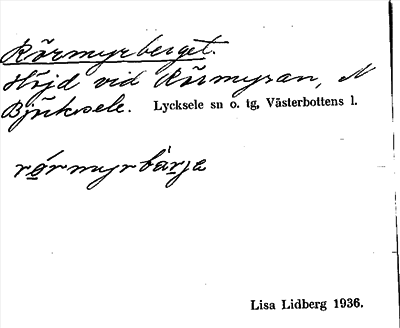 Rörmyrberget.
Höjd vid Rörmyran, N
Björksele. Lycksele sn o. tg, Västerbottens l.
rørmyrbärja
Lisa Lidberg 1936.